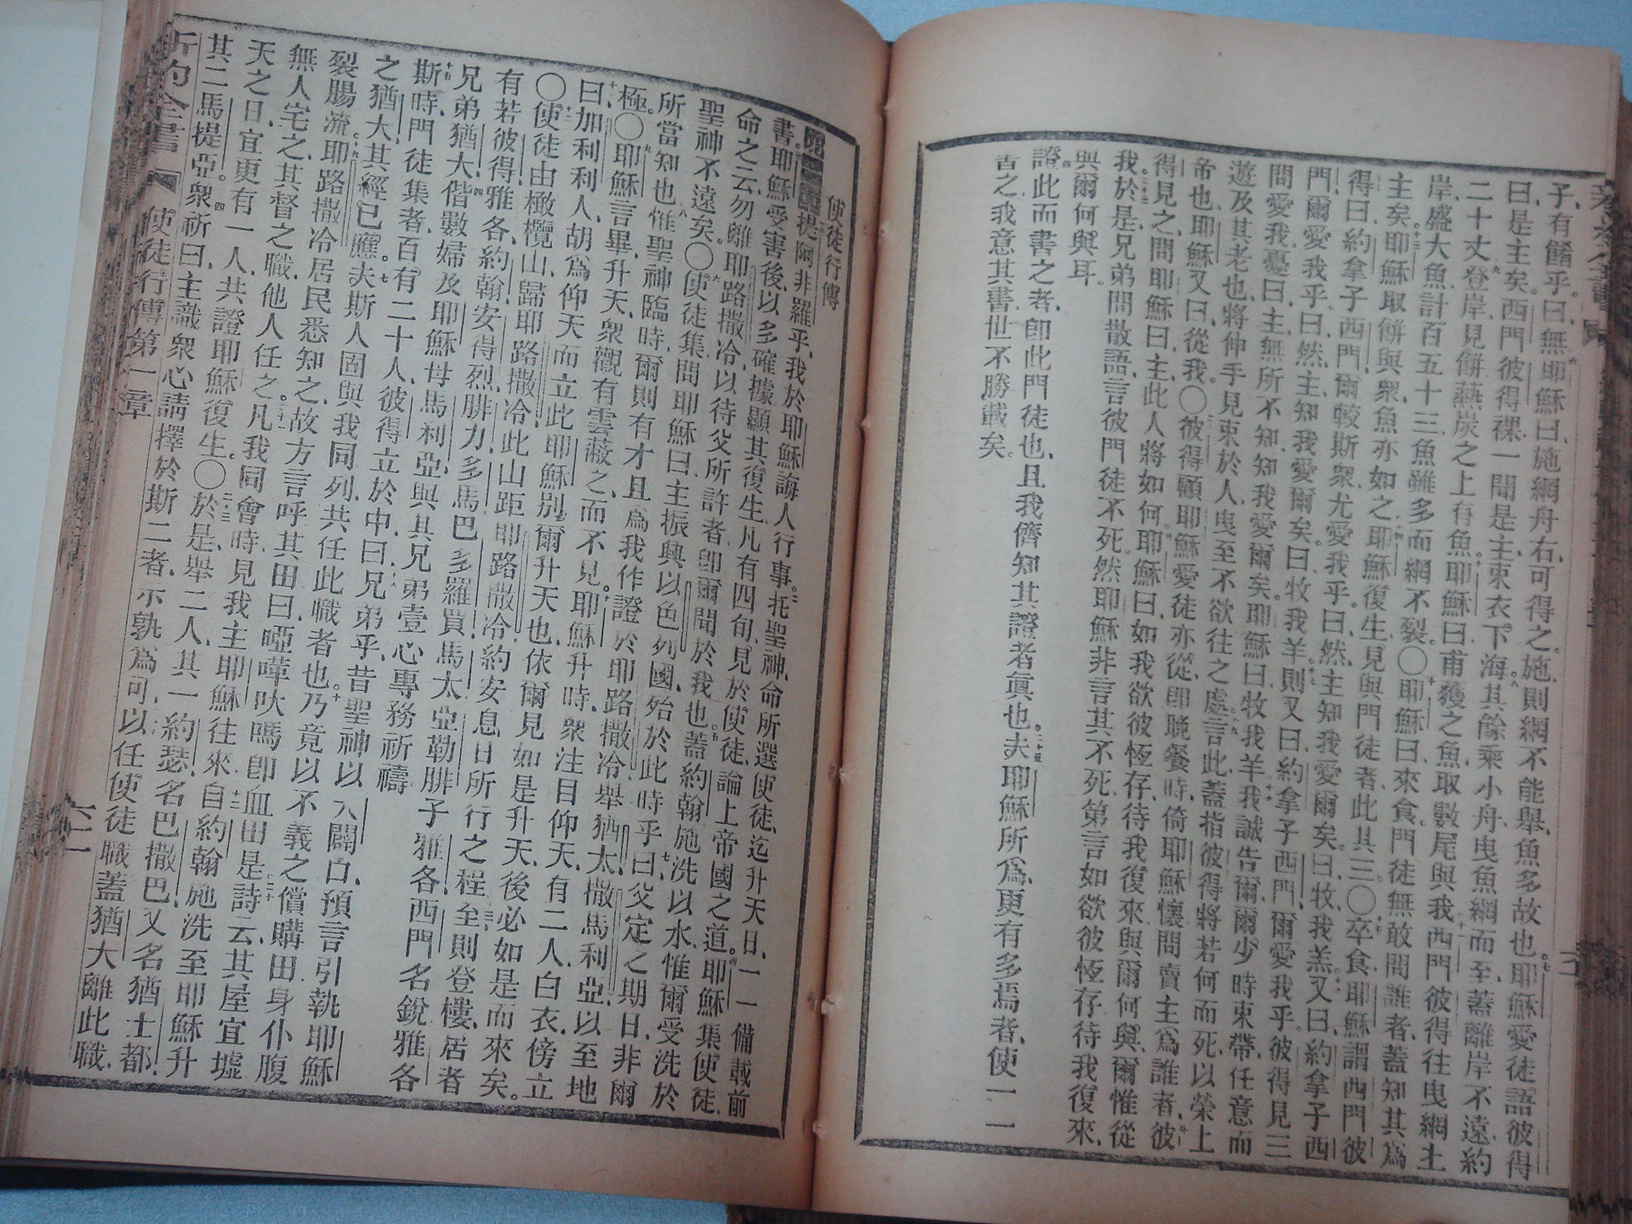 子、有餚乎。曰、無。耶穌曰、施網舟右、可得之。施則網不能舉、魚多故也。耶穌愛徒語彼得
曰、是主矣。西門彼得裸、一聞是主、束衣下海、其餘乘小舟、曳魚網而至、蓋離岸不遠、約
二十丈、登岸、見餅爇炭之上有魚、耶穌曰、甫獲之魚、取數尾與我、西門彼得往、曳網土
岸、盛大魚、計百五十三、魚雖多而網不裂。〇耶穌曰、來食、門徒無敢問誰者、蓋知其爲
主矣、耶穌取餅與衆、魚亦如之、耶穌復生、見與門徒者、此其三。〇卒食、耶穌謂西門彼
得曰、約拿子西門、爾較斯衆尤愛我乎、曰、然、主知我愛爾矣、曰、牧我羔、又曰、約拿子西
門、爾愛我乎、曰、然、主知我愛爾矣、曰、牧我羊、則又曰、約拿子西門、爾愛我乎、彼得見三
問愛我、憂曰、主無所不知、知我愛爾矣、耶穌曰、牧我羊、我誠告爾、爾少時束帶、任意而
遊、及其老也、將伸手見束於人、曳至不欲往之處、言此、蓋指彼得將若何而死、以榮上
帝也、耶穌又曰、從我。〇彼得顧耶穌愛徒亦從、卽晚餐時、倚耶穌懷、問賣主爲誰者、彼
得見之、問耶穌曰、主、此人將如何、耶穌曰、如我欲彼恆存待我復來、與爾何與、爾惟從
我、於是兄弟間散語、言彼門徒不死、然耶穌非言其不死、第言如欲彼恆存待我復來、
與爾何與耳。
證此而書之者、卽此門徒也、且我儕知其證者眞也、夫耶穌所爲、更有多焉者、使一一
書之、我意其書、世不勝載矣。
使徒行傳
提阿非羅乎、我於耶穌誨人行事、托聖神、命所選使徒、迄升天日、一一備載前
書、耶穌受害後、以多確據顯其復生、凡有四旬、見於使徒、論上帝國之道。耶穌集使徒、
命之云、勿離耶路撒冷、以待父所許者、卽爾聞於我也、蓋約翰施洗以水、惟爾受洗於
聖神不遠矣。〇使徒集、問耶穌曰、主振興以色列國、殆於此時乎、曰、父定之期日、非爾
所當知也、惟聖神臨時、爾則有才、且爲我作證、於耶路撒冷、舉猶太撒馬利亞、以至地
極。〇耶穌言畢、升天、衆觀有雲蔽之而不見、耶穌升時、衆注目仰天、有二人白衣傍立
曰、加利利人、胡爲仰天而立、此耶穌別爾升天也、依爾見如是升天、後必如是而來矣。
〇使徒由橄欖山歸耶路撒冷、此山距耶路撒冷、約安息日所行之程、至則登樓、居者
有若彼得、雅各、約翰、安得烈、腓力、多馬、巴多羅買、馬太、亞勒腓子雅各、西門名銳、雅各
兄弟猶大、偕數婦及耶穌母馬利亞、與其兄弟、壹心專務祈禱
斯時、門徒集者、百有二十人、彼得立於中、曰、兄弟乎、昔聖神以大闢口、預言引執耶穌
之猶大、其經已應、夫斯人固與我同列、共任此職者也、乃竟以不義之償購田、身仆腹
裂腸流、耶路撒冷居民悉知之、故方言呼其田曰啞嘩吠嗎、卽血田、是詩云、其屋宜墟
無人宅之、其督之職、他人任之。凡我同會時、見我主耶穌往來、自約翰施洗、至耶穌升
天之日、宜更有一人、共證耶穌復生。〇於是舉二人、其一約瑟、名巴撒巴、又名猶士都、
其二馬提亞、衆祈曰、主識衆心、請擇於斯二者、示孰爲可、以任使徒職、蓋猶大離此職、
新約全書 使徒行傳第一章